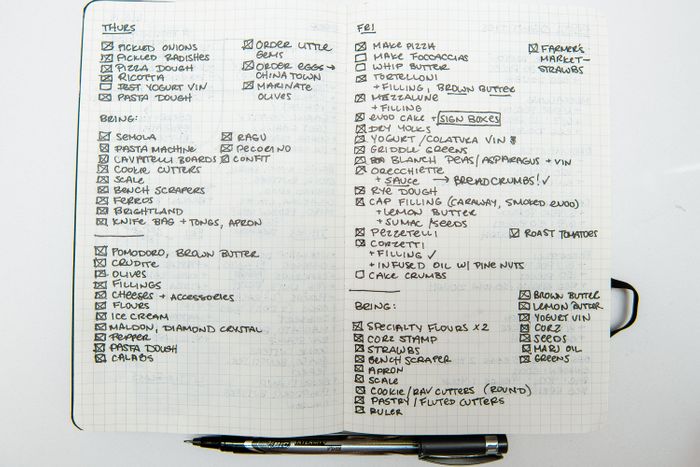 THURS
PICKLED ONIONS
PICKLED RADISHES
PIZZA DOUGH
RICOTTA
TEST YOGURT VIN
PASTA DOUGH
ORDER LITTLE
GEMS
ORDER EGGS →
CHINATOWN
MARINATE
OLIVES
BRING:
SEMOLA
PASTA MACHINE
CAVATELLI BOARDS
COOKIE CUTTERS
SCALE
BENCH SCRAPERS
FERROS
BRIGHTLAND
KNIFE BAG + TONGS, APRON
RAGU
PECORINO
CONFIT
POMODORO, BROWN BUTTER
CRUDITE
OLIVES
FILLINGS
CHEESES + ACCESSORIES
FLOURS
ICE CREAM
MALDON, DIAMOND CRYSTAL
PEPPER
PASTA DOUGH
CALABS
FRI
MAKE PIZZA
MAKE FOCCACCIAS
WHIP BUTTER
TORTELLONI
+ FILLING, BROWN BUTTER
MEZZALUNE
+ FILLING
EVOO CAKE + SIGN BOXES
DRY YOLKS
YOGURT / COLATURA VIN
GRIDDLE GREENS
BLANCH PEAS / ASPARAGUS + VIN
ORECCHIETTE
+ SAUCE → BREADCRUMBS! ✓
RYE DOUGH
CAP FILLING (CARAWAY, SMOKED EVOO)
+ LEMON BUTTER
+ SUMAC / SEEDS
PEZZETELLI
CORZETTI
+ FILLING ✓
+ INFUSED OIL W/ PINE NUTS
CAKE CRUMBS
FARMER'S
MARKET -
STRAWBS
ROAST TOMATOES
BRING:
SPECIALTY FLOURS x2
CORZ STAMP
STRAWBS
BENCH SCRAPER
APRON
SCALE
COOKIE / RAV CUTTERS (ROUND)
PASTRY / FLUTED CUTTERS
RULER
BROWN BUTTER
LEMON BUTTER
YOGURT VIN
CORZ
SEEDS
MARJ OIL
GREENS